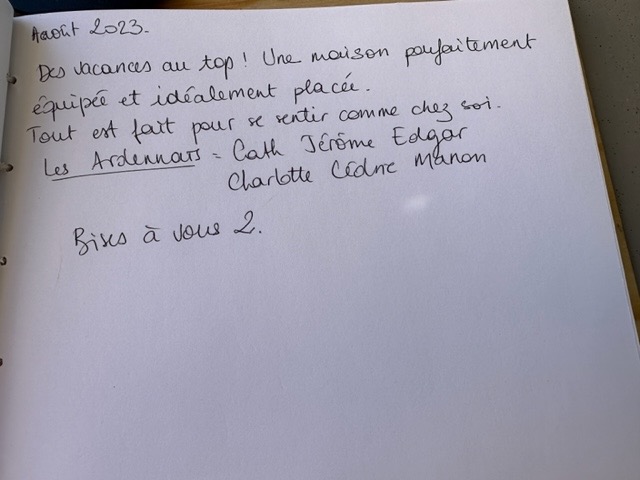 Aaoüt 2023.
Des vacances au top ! Une maison parfaitement
équipée et idéalement placée.
Tout est fait pour se sentir comme chez soi.
Les Ardennais = Cath Jérôme Edgar
Charlotte Cédric Manon
Bises à vous 2.